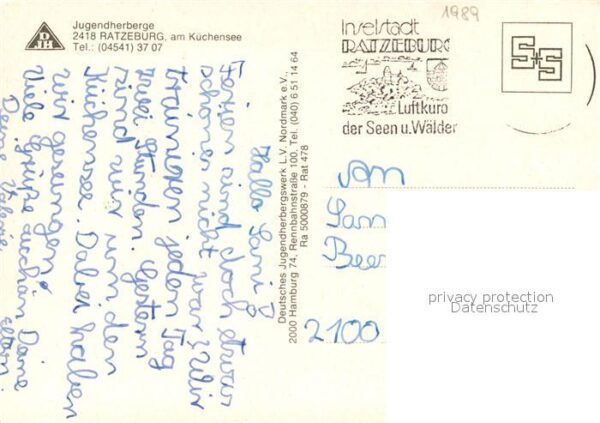 Jugendherberge
2418 RATZEBURG, am Küchensee
Tel.: (04541) 37 07
DJH
1989
Inselstadt
RATZEBURG
Luftkuro
der Seen u. Wälder
S+S
Deutsches Jugendherbergswerk L.V. Nordmark e.V.,
2000 Hamburg 74, Rennbahnstraße 100, Tel. (040) 6 51 14 64
Ra 5000879 - Rat 478
Hallo Sani!
Ferien sind doch etwas
schönes nicht war? Wir
trainieren jeden Tag
zwei Stunden. Gestern
sind wir um den
Küchensee. Dabei haben
wir gesungen.
Viele Grüße auch an Deine
Eltern.
Deine Valerie
An
San
Beer
2100
privacy protection
Datenschutz